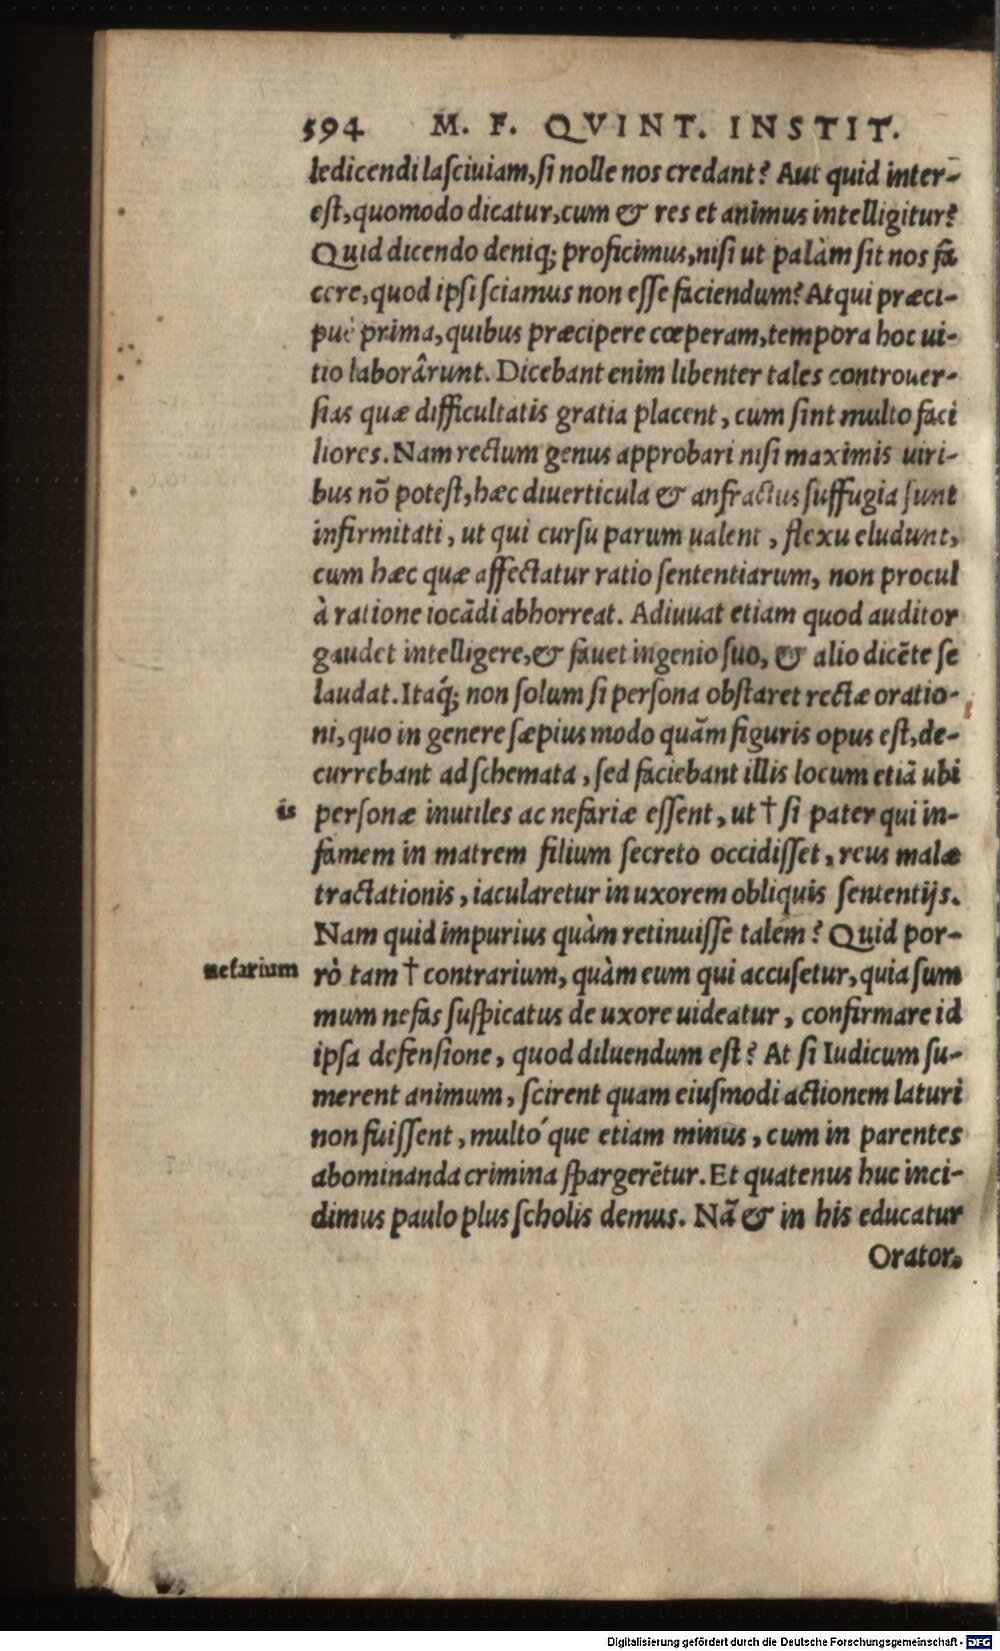 594 M. F. QVINT. INSTIT.
ledicendi laſciuiam, ſi nolle nos credant? Aut quid inter-
eſt, quomodo dicatur, cum & res et animus intelligitur?
Quid dicendo deniq; proficimus, niſi ut palàm ſit nos fa
cere, quod ipſi ſciamus non eſſe faciendum? Atqui præci-
puè prima, quibus præcipere cœperam, tempora hoc ui-
tio laborârunt. Dicebant enim libenter tales controuer-
ſias quæ difficultatis gratia placent, cum ſint multo faci
liores. Nam rectum genus approbari niſi maximis uiri-
bus nõ poteſt, hæc diuerticula & anfractus ſuffugia ſunt
infirmitati, ut qui curſu parum ualent, flexu eludunt,
cum hæc quæ affectatur ratio ſententiarum, non procul
à ratione iocãdi abhorreat. Adiuuat etiam quod auditor
gaudet intelligere, & fauet ingenio ſuo, & alio dicẽte ſe
laudat. Itaq́; non ſolum ſi perſona obſtaret rectæ oratio-
ni, quo in genere ſæpius modo quãm figuris opus eſt, de-
currebant ad ſchemata, ſed faciebant illis locum etiã ubi
is perſonæ inutiles ac nefariæ eſſent, ut † ſi pater qui in-
famem in matrem filium ſecreto occidiſſet, reus malæ
tractationis, iacularetur in uxorem obliquis ſententijs.
Nam quid impurius quàm retinuiſſe talem? Quid por-
nefarium rò tam † contrarium, quàm eum qui accuſetur, quia ſum
mum nefas ſuſpicatus de uxore uideatur, confirmare id
ipſa defenſione, quod diluendum eſt? At ſi Iudicum ſu-
merent animum, ſcirent quam eiuſmodi actionem laturi
non fuiſſent, multó que etiam minus, cum in parentes
abominanda crimina ſpargerẽtur. Et quatenus huc inci-
dimus paulo plus ſcholis demus. Nã & in his educatur
Orator.
Digitalisierung gefördert durch die Deutsche Forschungsgemeinschaft - DFG